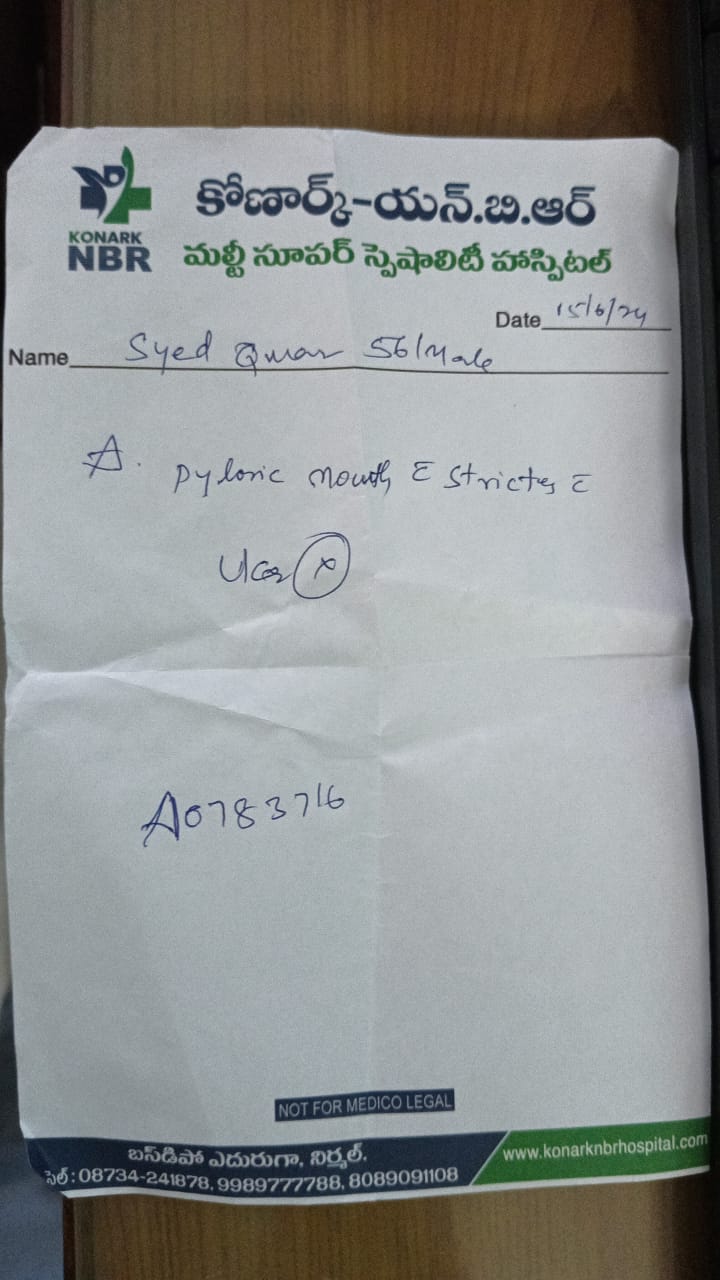 కోణార్క్-యన్.బి.ఆర్
KONARK
NBR
మల్టీ సూపర్ స్పెషాలిటీ హాస్పిటల్
Date 15/6/24
Name Syed 56/Male
pyloric mouth c̄ c̄
A0783716
NOT FOR MEDICO LEGAL
బస్‌డిపో ఎదురుగా, నిర్మల్.
సెల్ : 08734-241878, 9989777788, 8089091108
www.konarknbrhospital.com